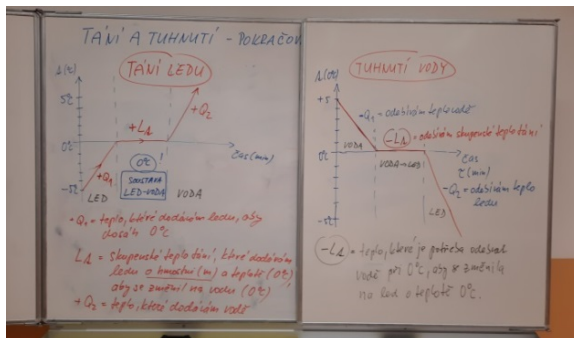 TÁNÍ A TUHNUTÍ - POKRAČOV
TÁNÍ LEDU
5℃
0℃
-5℃
+Q₁
+Lₜ
+Q₂
čas (min)
0℃
SOUSTAVA
LED-VODA
LED
VODA
-Q₁ = teplo, které dodávám ledu, aby
dosáhl 0℃
Lₜ = skupenské teplo tání, které dodávám
ledu o hmotnosti (m) a teplotě (0℃)
aby se změnil na vodu (0℃)
+Q₂ = teplo, které dodávám vodě
TUHNUTÍ VODY
+5
0℃
-5℃
-Q₁ - odebírám teplo vodě
-Lₜ = odebírám skupenské teplo tání
VODA
VODA→LED
LED
čas
τ (min)
-Q₂ - odebírám teplo
ledu
-Lₜ = teplo, které je potřeba odebrat
vodě při 0℃, aby se změnila
na led o teplotě 0℃.